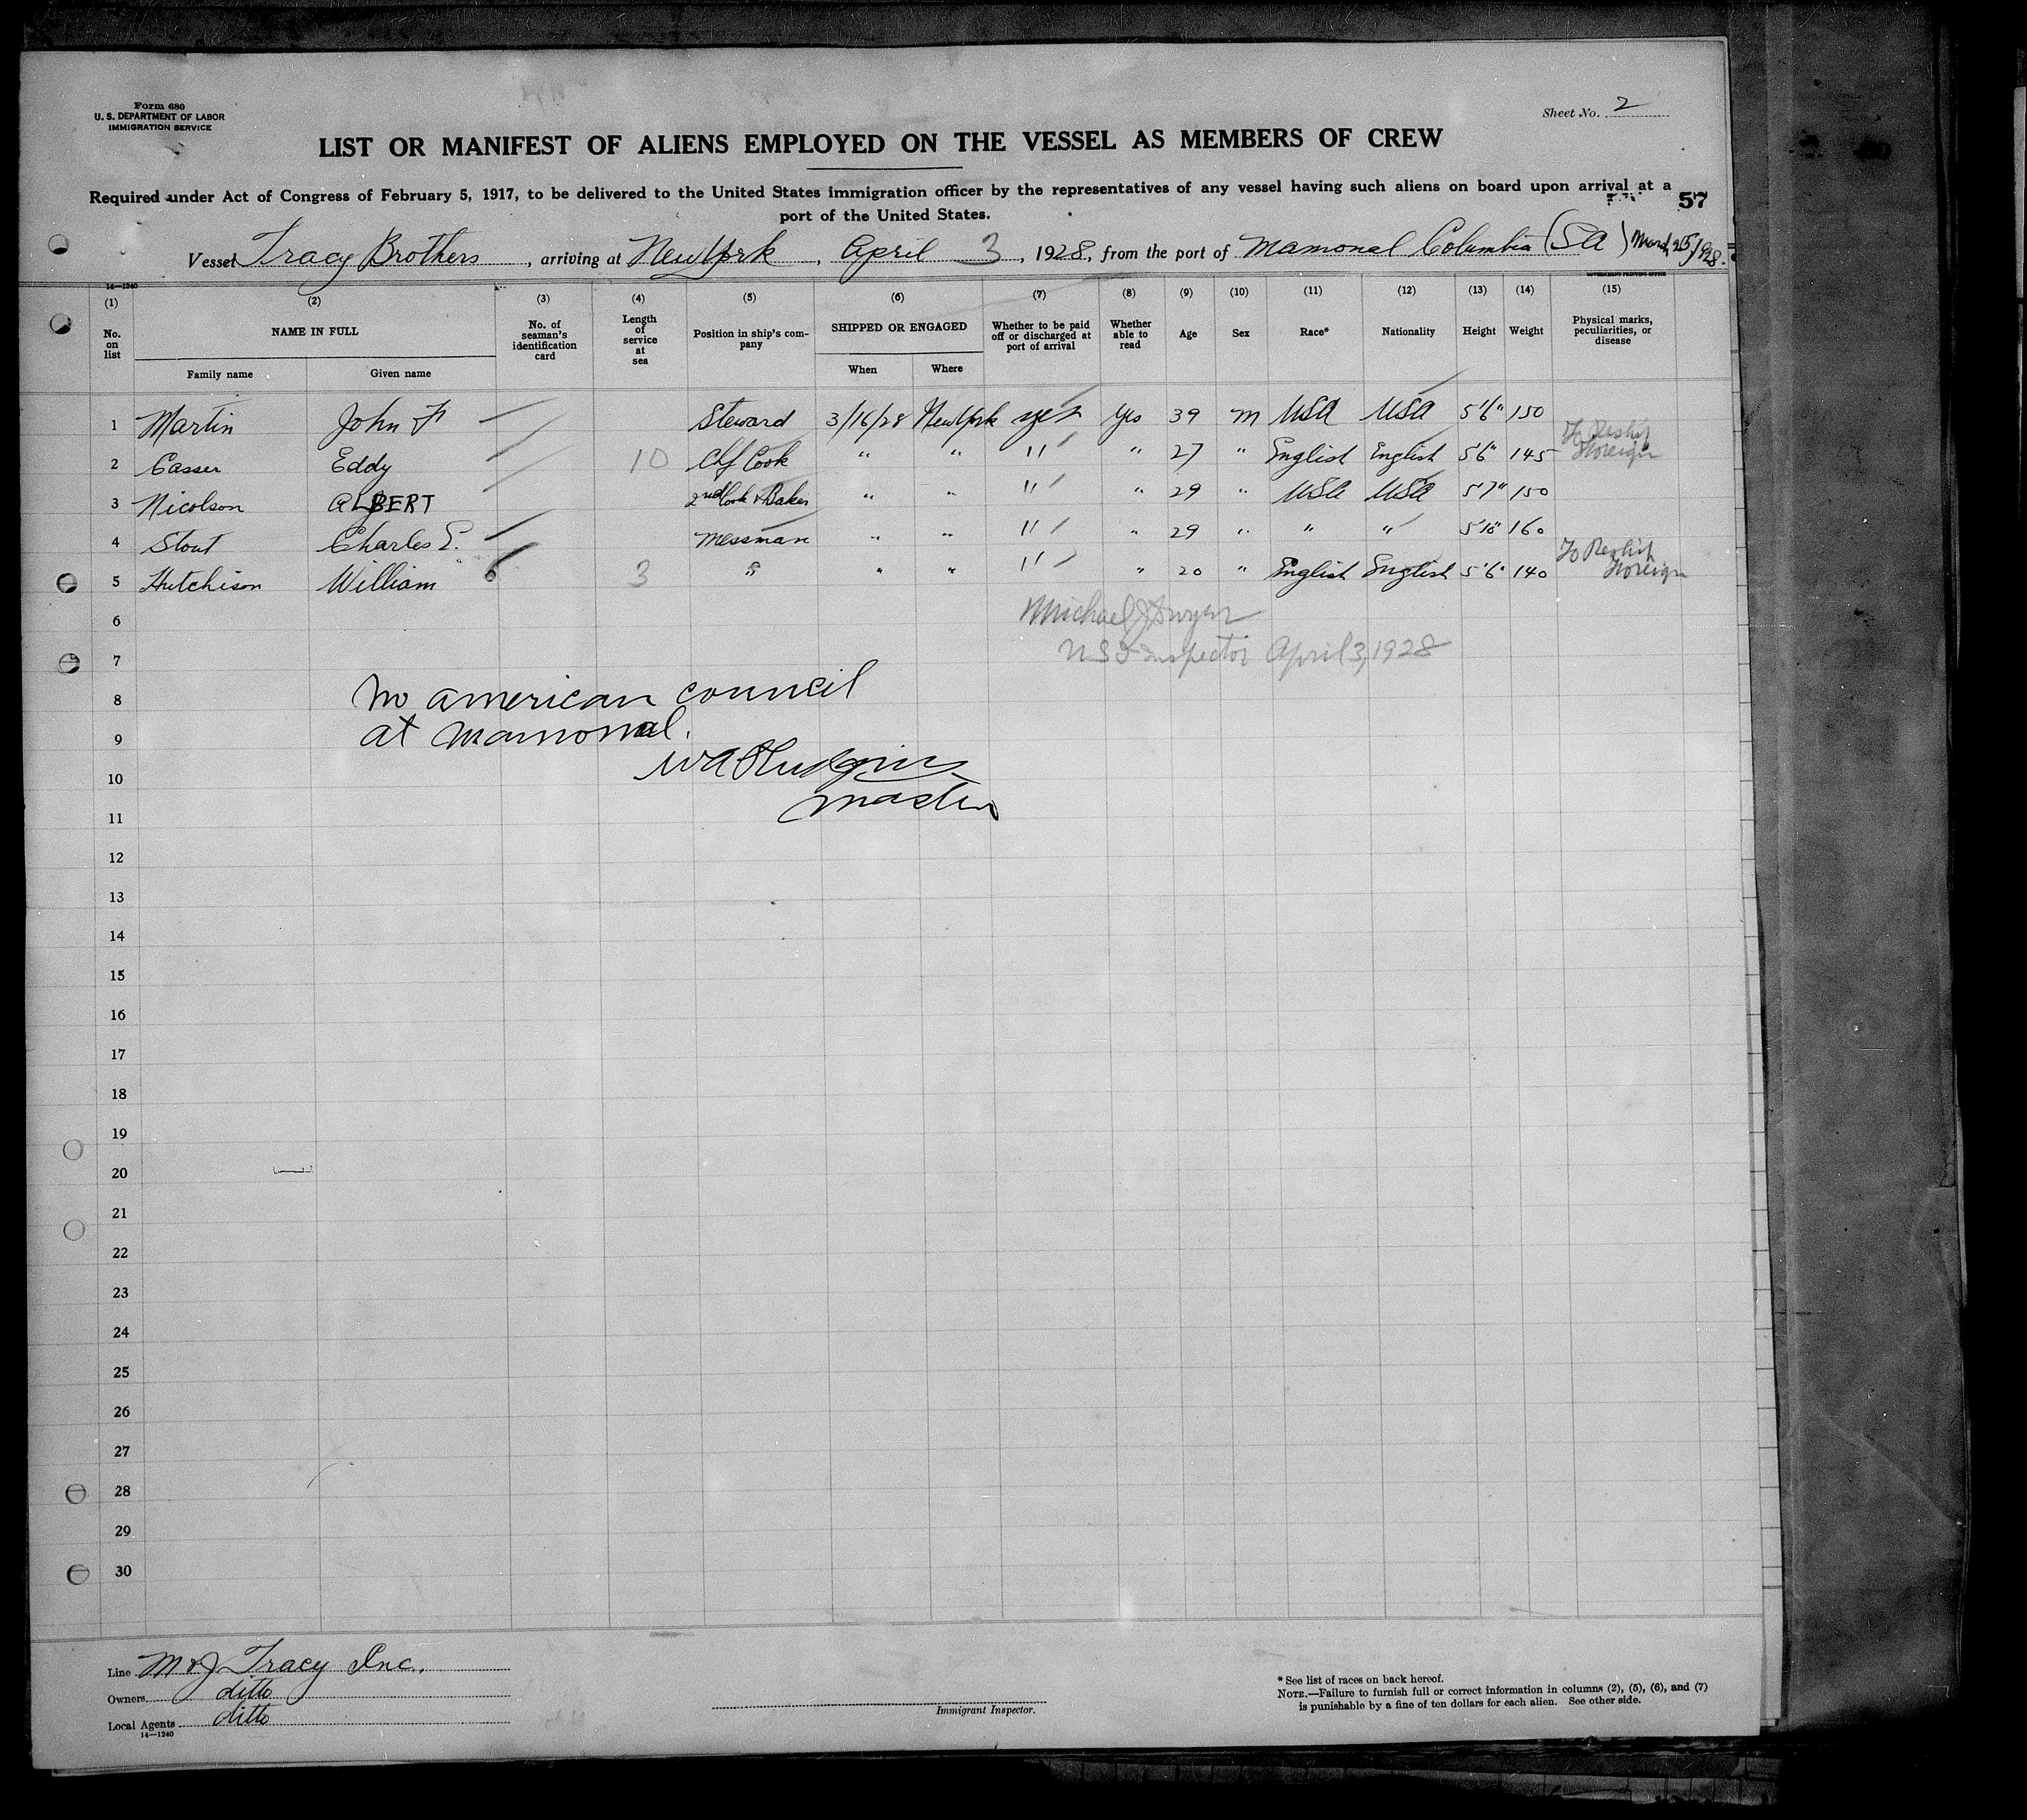 Form 680
U. S. DEPARTMENT OF LABOR
IMMIGRATION SERVICE
Sheet No. 2
LIST OR MANIFEST OF ALIENS EMPLOYED ON THE VESSEL AS MEMBERS OF CREW
Required under Act of Congress of February 5, 1917, to be delivered to the United States immigration officer by the representatives of any vessel having such aliens on board upon arrival at a
port of the United States.
57
Vessel Tracy Brothers, arriving at New York, April 3, 1928, from the port of Mamonal Columbia (SA) March 25/1928.
14—1240
GOVERNMENT PRINTING OFFICE
(1) (2) (3) (4) (5) (6) (7) (8) (9) (10) (11) (12) (13) (14) (15)
No. on list NAME IN FULL No. of seaman's identification card Length of service at sea Position in ship's company SHIPPED OR ENGAGED Whether to be paid off or discharged at port of arrival Whether able to read Age Sex Race* Nationality Height Weight Physical marks, peculiarities, or disease
Family name Given name When Where
1 Martin John F Steward 3/16/28 New York yes Yes 39 M USA USA 5'6" 150
2 Casser Eddy 10 Chf Cook " " " " 27 " English English 5'6" 145 To Reship Foreign
3 Nicolson ALBERT 2nd Cook & Baker " " " " 29 " USA USA 5'7" 150
4 Stout Charles E. Messman " " " " 29 " " " 5'10" 160
5 Hutchison William 3 " " " " " 20 " English English 5'6" 140 To Reship Foreign
6 Michael J Dwyer
7 USI Inspector April 3, 1928
8 No american council
9 at mamonal.
10 WA Hudgins
11 master
12
13
14
15
16
17
18
19
20
21
22
23
24
25
26
27
28
29
30
Line M & J Tracy Inc.
Owners ditto
Local Agents ditto
14—1240
Immigrant Inspector.
* See list of races on back hereof.
NOTE.—Failure to furnish full or correct information in columns (2), (5), (6), and (7)
is punishable by a fine of ten dollars for each alien. See other side.